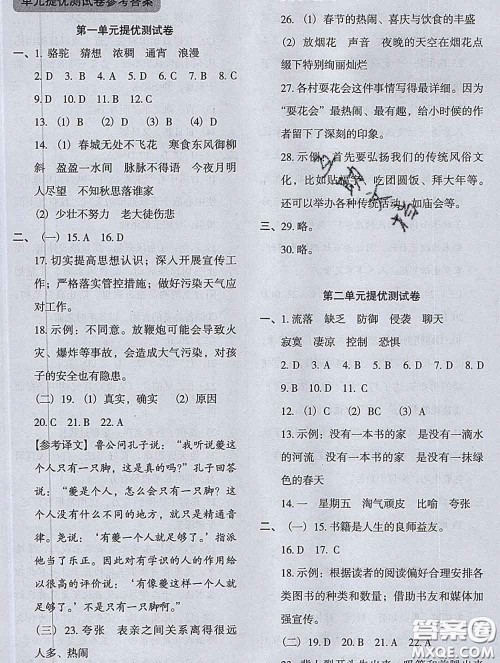 单元提优测试卷参考答案
第一单元提优测试卷
一、1. 骆驼 猜想 浓稠 通宵 浪漫
2. D 3. A 4. D 5. B 6. C 7. B 8. C
9. D 10. D 11. C 12. B
13. (1) B (2) C (3) A
14. (1) 春城无处不飞花 寒食东风御柳
斜 盈盈一水间 脉脉不得语 今夜月明
人尽望 不知秋思落谁家
(2) 少壮不努力 老大徒伤悲
二、(一) 15. A 16. D
17. 切实提高思想认识；深入开展宣传工
作；严格落实管控措施；做好污染天气应
对工作。
18. 示例：不同意。放鞭炮可能会导致火
灾、爆炸等事故，会造成大气污染，对孩
子的安全也有隐患。
(二) 19. (1) 真实，确实 (2) 原因
20. C 21. A 22. C
【参考译文】鲁公问孔子说：“我听说夔这
个人只有一只脚，这是真的吗？”孔子回答
说：“夔是个人，怎么会只有一只脚？这个
人没有什么与众不同的地方，就只是精通音
律。尧说：‘有夔一个人就足够了。’指派
他当了乐正。因此有学识的人对他的作用给
以很高的评价说：‘有像夔这样的人一个就
足够了。’并不是说夔只有一只脚啊。”
(三) 23. 夸张 表亲之间关系离得很远
人多、热闹
26. 春节的热闹、喜庆与饮食的丰盛
(2) 放烟花 声音 夜晚的天空在烟花的点
缀下特别绚丽灿烂
27. 各村耍花会这件事情写得最详细。因为
“耍花会”最热闹、最有趣，给小时候的作
者留下了深刻的印象。
28. 示例：首先要弘扬我们的传统风俗文
化，比如贴春联、吃团圆饭、拜大年等。
还可以举办各种传统活动，如庙会等。
三、29. 略。
30. 略。
第二单元提优测试卷
一、1. 流落 缺乏 防御 侵袭 聊天
寂寞 凄凉 控制 恐惧
2. D 3. D 4. A 5. B 6. C 7. D 8. C
9. B 10. D 11. C
12. (1) B (2) C (3) A
13. 示例：没有一本书的家 是没有一滴水
的河流 没有一本书的家 是没有一抹绿
色的春天
14. 一 星期五 淘气顽皮 比喻 夸张
二、(一) 15. 书籍是人生的良师益友。
16. D 17. C
18. 示例：根据读者的阅读偏好合理安排各
类图书的种类和数量；借助书友和媒体加
强宣传。
(二) 19. D 20. B 21. D 22. A
答案圈
MXQE.COM